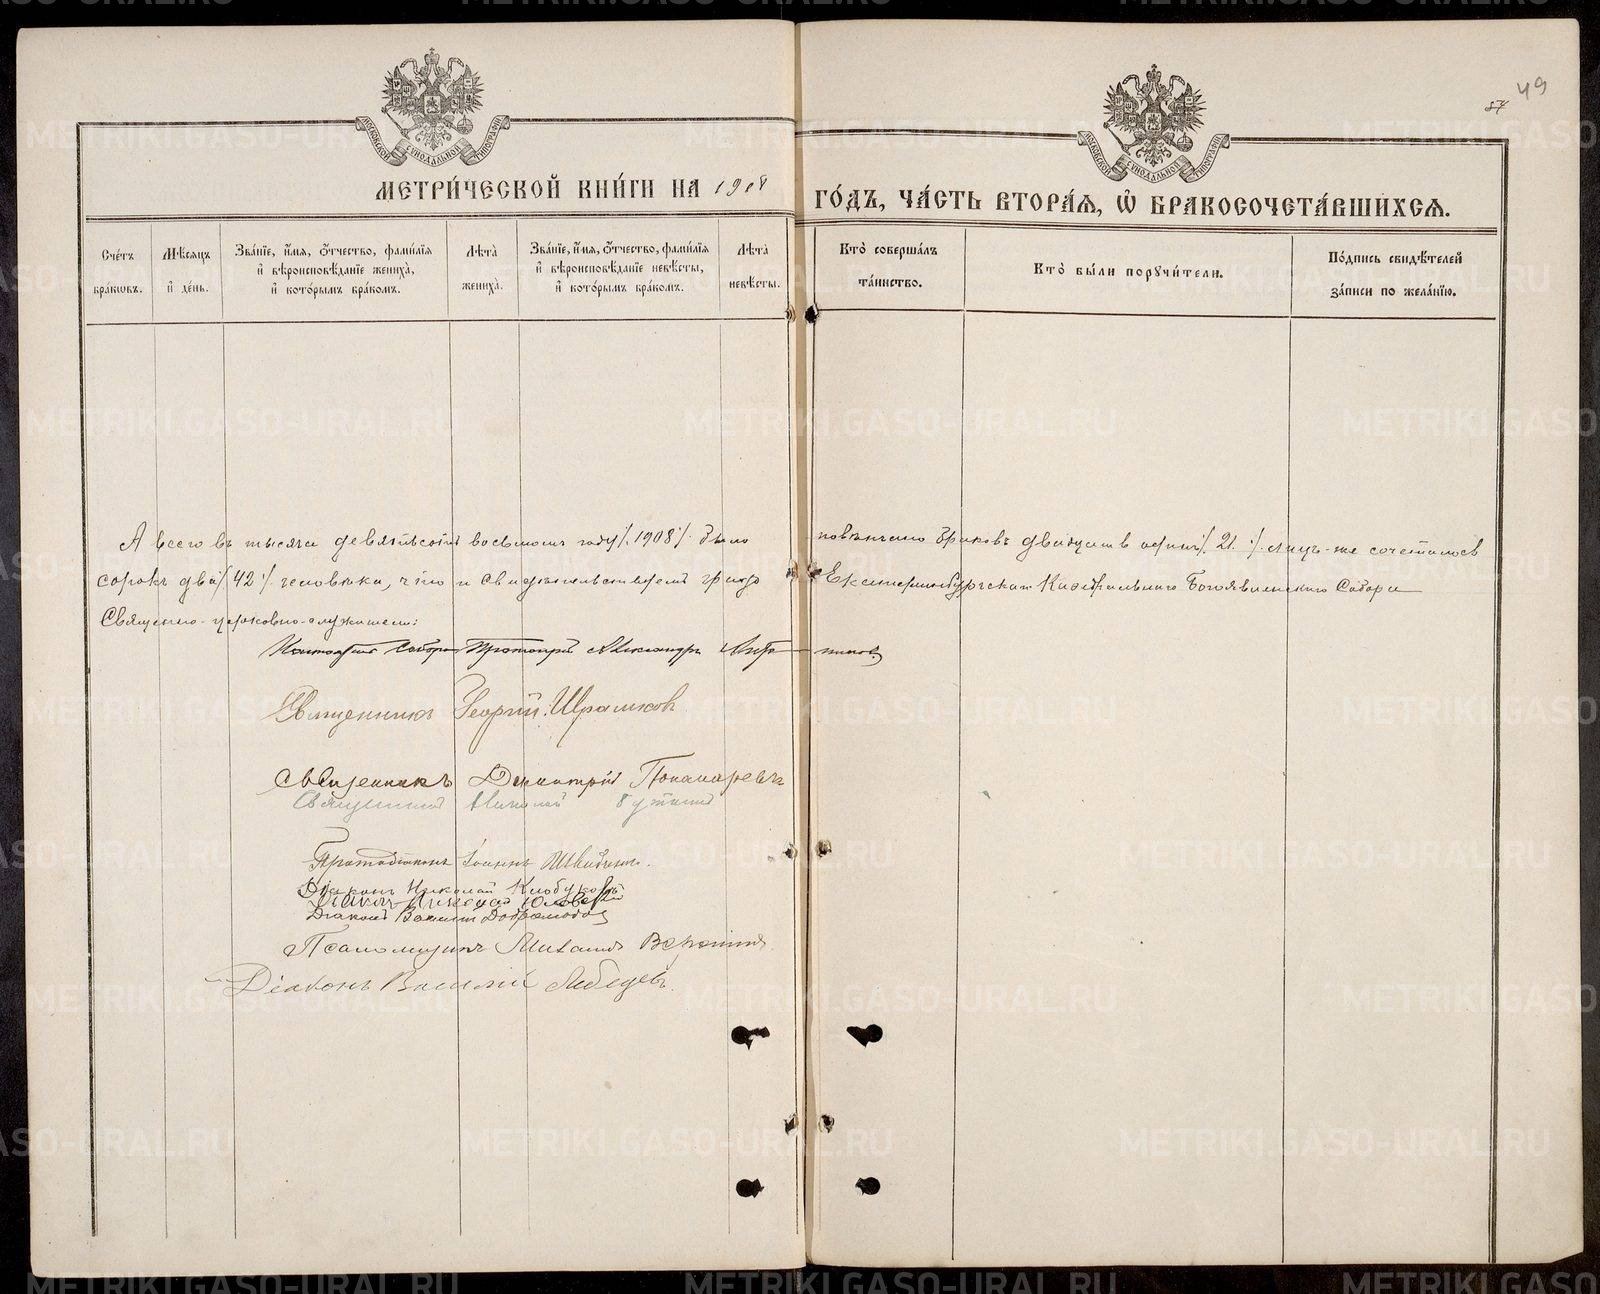 МОСКОВСКОЙ СѴНОДАЛЬНОЙ ТИПОГРАФІИ
МОСКОВСКОЙ СѴНОДАЛЬНОЙ ТИПОГРАФІИ
49
57
МЕТРИ́ЧЕСКОЙ КНИ́ГИ НА 1908 ГО́ДЪ, ЧА́СТЬ ВТОРА́Я, Ѡ БРАКОСОЧЕТА́ВШИХСЯ.
Сче́тъ бра́кѡвъ.
Мѣ́сяцъ и҆ де́нь.
Зва́нїе, и҆́мя, ѻ҆́тчество, фами́лїя и҆ вѣроисповѣ́данїе жениха̀, и҆ кото́рымъ бра́комъ.
Лѣ́та жениха̀.
Зва́нїе, и҆́мя, ѻ҆́тчество, фами́лїя и҆ вѣроисповѣ́данїе невѣ́сты, и҆ кото́рымъ бра́комъ.
Лѣ́та невѣ́сты.
Кто̀ соверша́лъ та́инство.
Кто̀ бы́ли порꙋчи́тели.
По́дпись свидѣ́телей за́писи по жела́нїю.
А всего въ тысяча девятьсотъ восьмомъ году /.1908./ было повѣнчано браковъ двадцать одинъ /.21./. лицъ-же сочеталось
сорокъ два /.42./. человѣка, что и свидѣтельствуемъ Екатеринбургскаго Каѳедральнаго Богоявленскаго Собора
Священно-церковно-служители:
Настоятель Собора Протоіерей Александръ
Священникъ Георгій Шрамковъ
Священникъ Димитрій Понамаревъ
Священникъ Николай
Протодіаконъ Іоаннъ
Діаконъ Николай Клобуковъ
Діаконъ
Діаконъ Василій
Псаломщикъ Михаилъ
Діаконъ Василій Лебедевъ.
METRIKI.GASO-URAL.RU